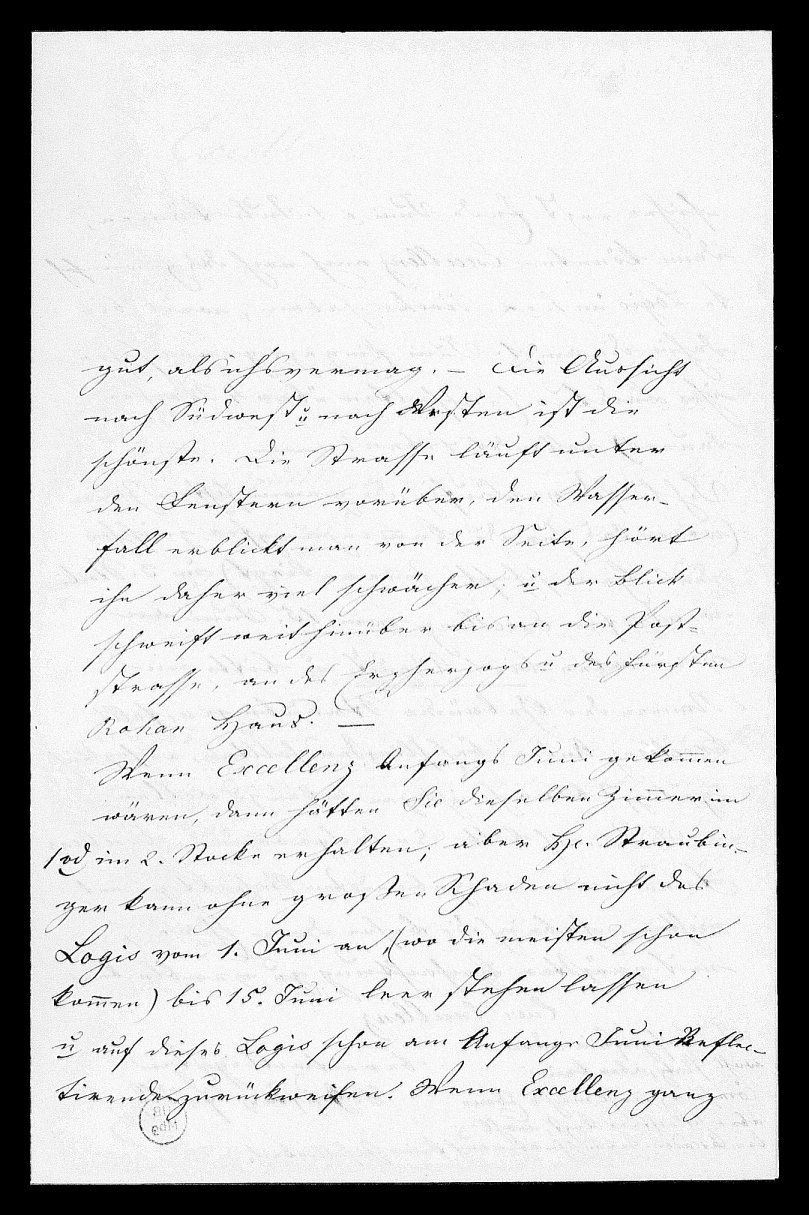 gut, als ich's vermag. – Die Aussicht
nach Südwest u nach Westen ist die
schönste. Die Strasse läuft unter
den Fenstern vorüber, den Wasser-
fall erblickt man von der Seite, hört
ihn daher viel schwächer, u der Blick
schweift weit hinüber bis an die Post-
strasse, an des Erzherzogs u des Fürsten
Rohan Haus. —
Wenn Excellenz Anfangs Juni gekommen
wären, dann hätten Sie dieselben Zimmer im
1 od im 2. Stocke erhalten; aber Hr. Straubin-
ger kann ohne großen Schaden nicht das
Logis vom 1. Juni an, (wo die meisten schon
kommen) bis 15. Juni leer stehen lassen
u auf dieses Logis schon am Anfange Juni Reflec-
tirende zurückweisen. Wenn Excellenz ganz